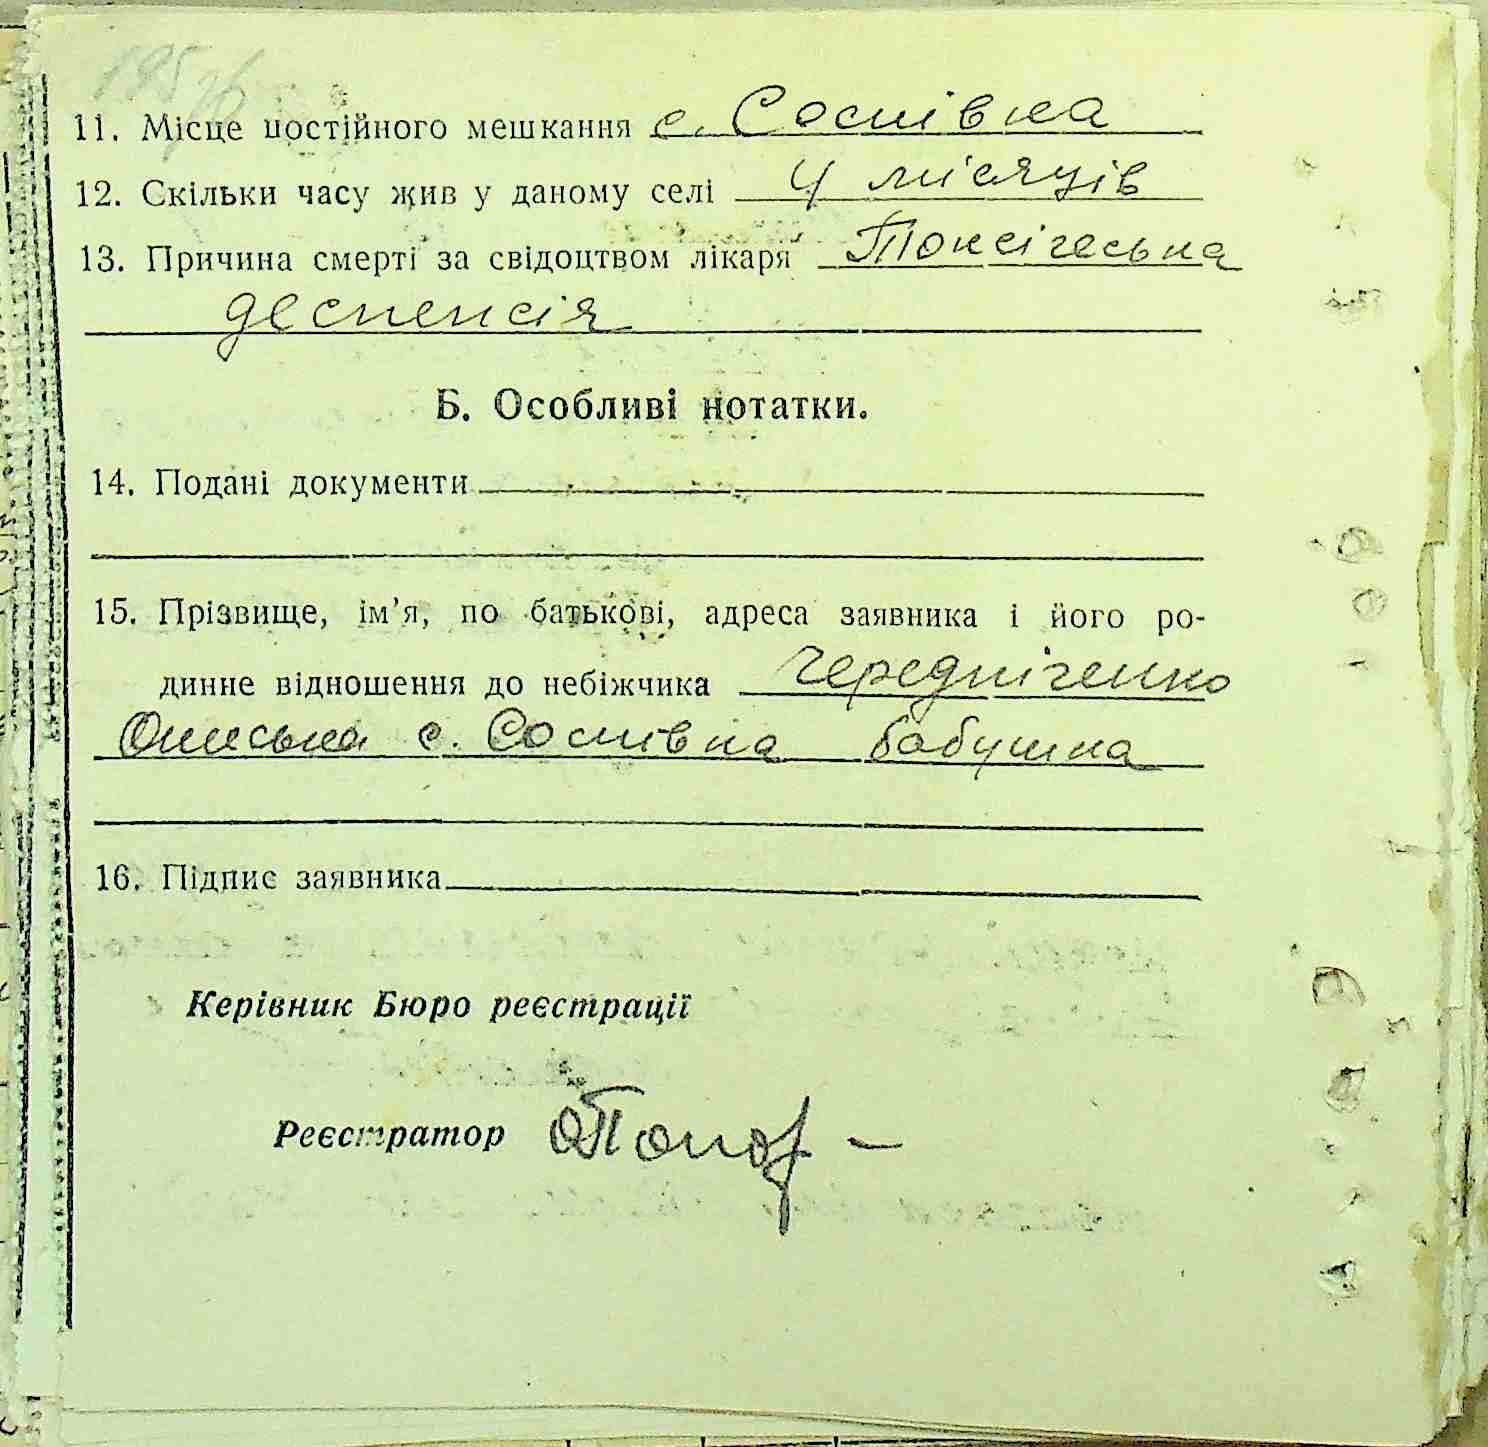 11. Місце постійного мешкання с. Соснівка
12. Скільки часу жив у даному селі 4 місяців
13. Причина смерті за свідоцтвом лікаря Токсічеська
деспепсія
Б. Особливі нотатки.
14. Подані документи
15. Прізвище, ім'я, по батькові, адреса заявника і його ро-
динне відношення до небіжчика Чередніченко
Ониська с. Соснівка бабушка
16. Підпис заявника
Керівник Бюро реєстрації
Реєстратор